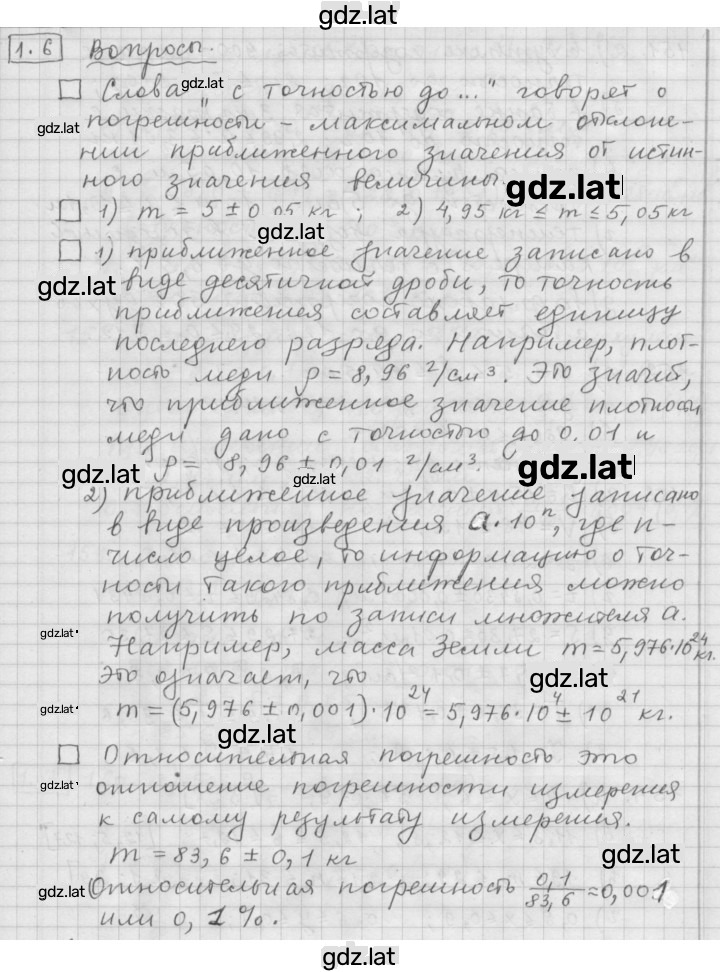 gdz.lat
1.6 Вопросы.
□ Слова "с точностью до..." говорят о
погрешности - максимальном отклоне-
нии приближенного значения от истин-
ного значения величины.
□ 1) m = 5 ± 0,05 кг ; 2) 4,95 кг ≤ m ≤ 5,05 кг
□ 1) приближенное значение записано в
виде десятичной дроби, то точность
приближения составляет единицу
последнего разряда. Например, плот-
ность меди ρ = 8,96 г/см³. Это значит,
что приближенное значение плотности
меди дано с точностью до 0.01 и
ρ = 8,96 ± 0,01 г/см³.
2) приближенное значение записано
в виде произведения a·10ⁿ, где n-
число целое, то информацию о точ-
ности такого приближения можно
получить по записи множителя a.
Например, масса Земли m = 5,976·10²⁴ кг.
Это означает, что
m = (5,976 ± 0,001)·10²⁴ = 5,976·10⁴ ± 10²¹ кг.
□ Относительная погрешность это
отношение погрешности измерения
к самому результату измерения.
m = 83,6 ± 0,1 кг
Относительная погрешность 0,1/83,6 ≈ 0,001
или 0,1%.
gdz.lat